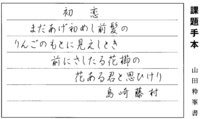 初恋
まだあげ初めし前髪の
りんごのもとに見えしとき
前にさしたる花櫛の
花ある君と思ひけり
島崎藤村
課題手本
山田粋峯書